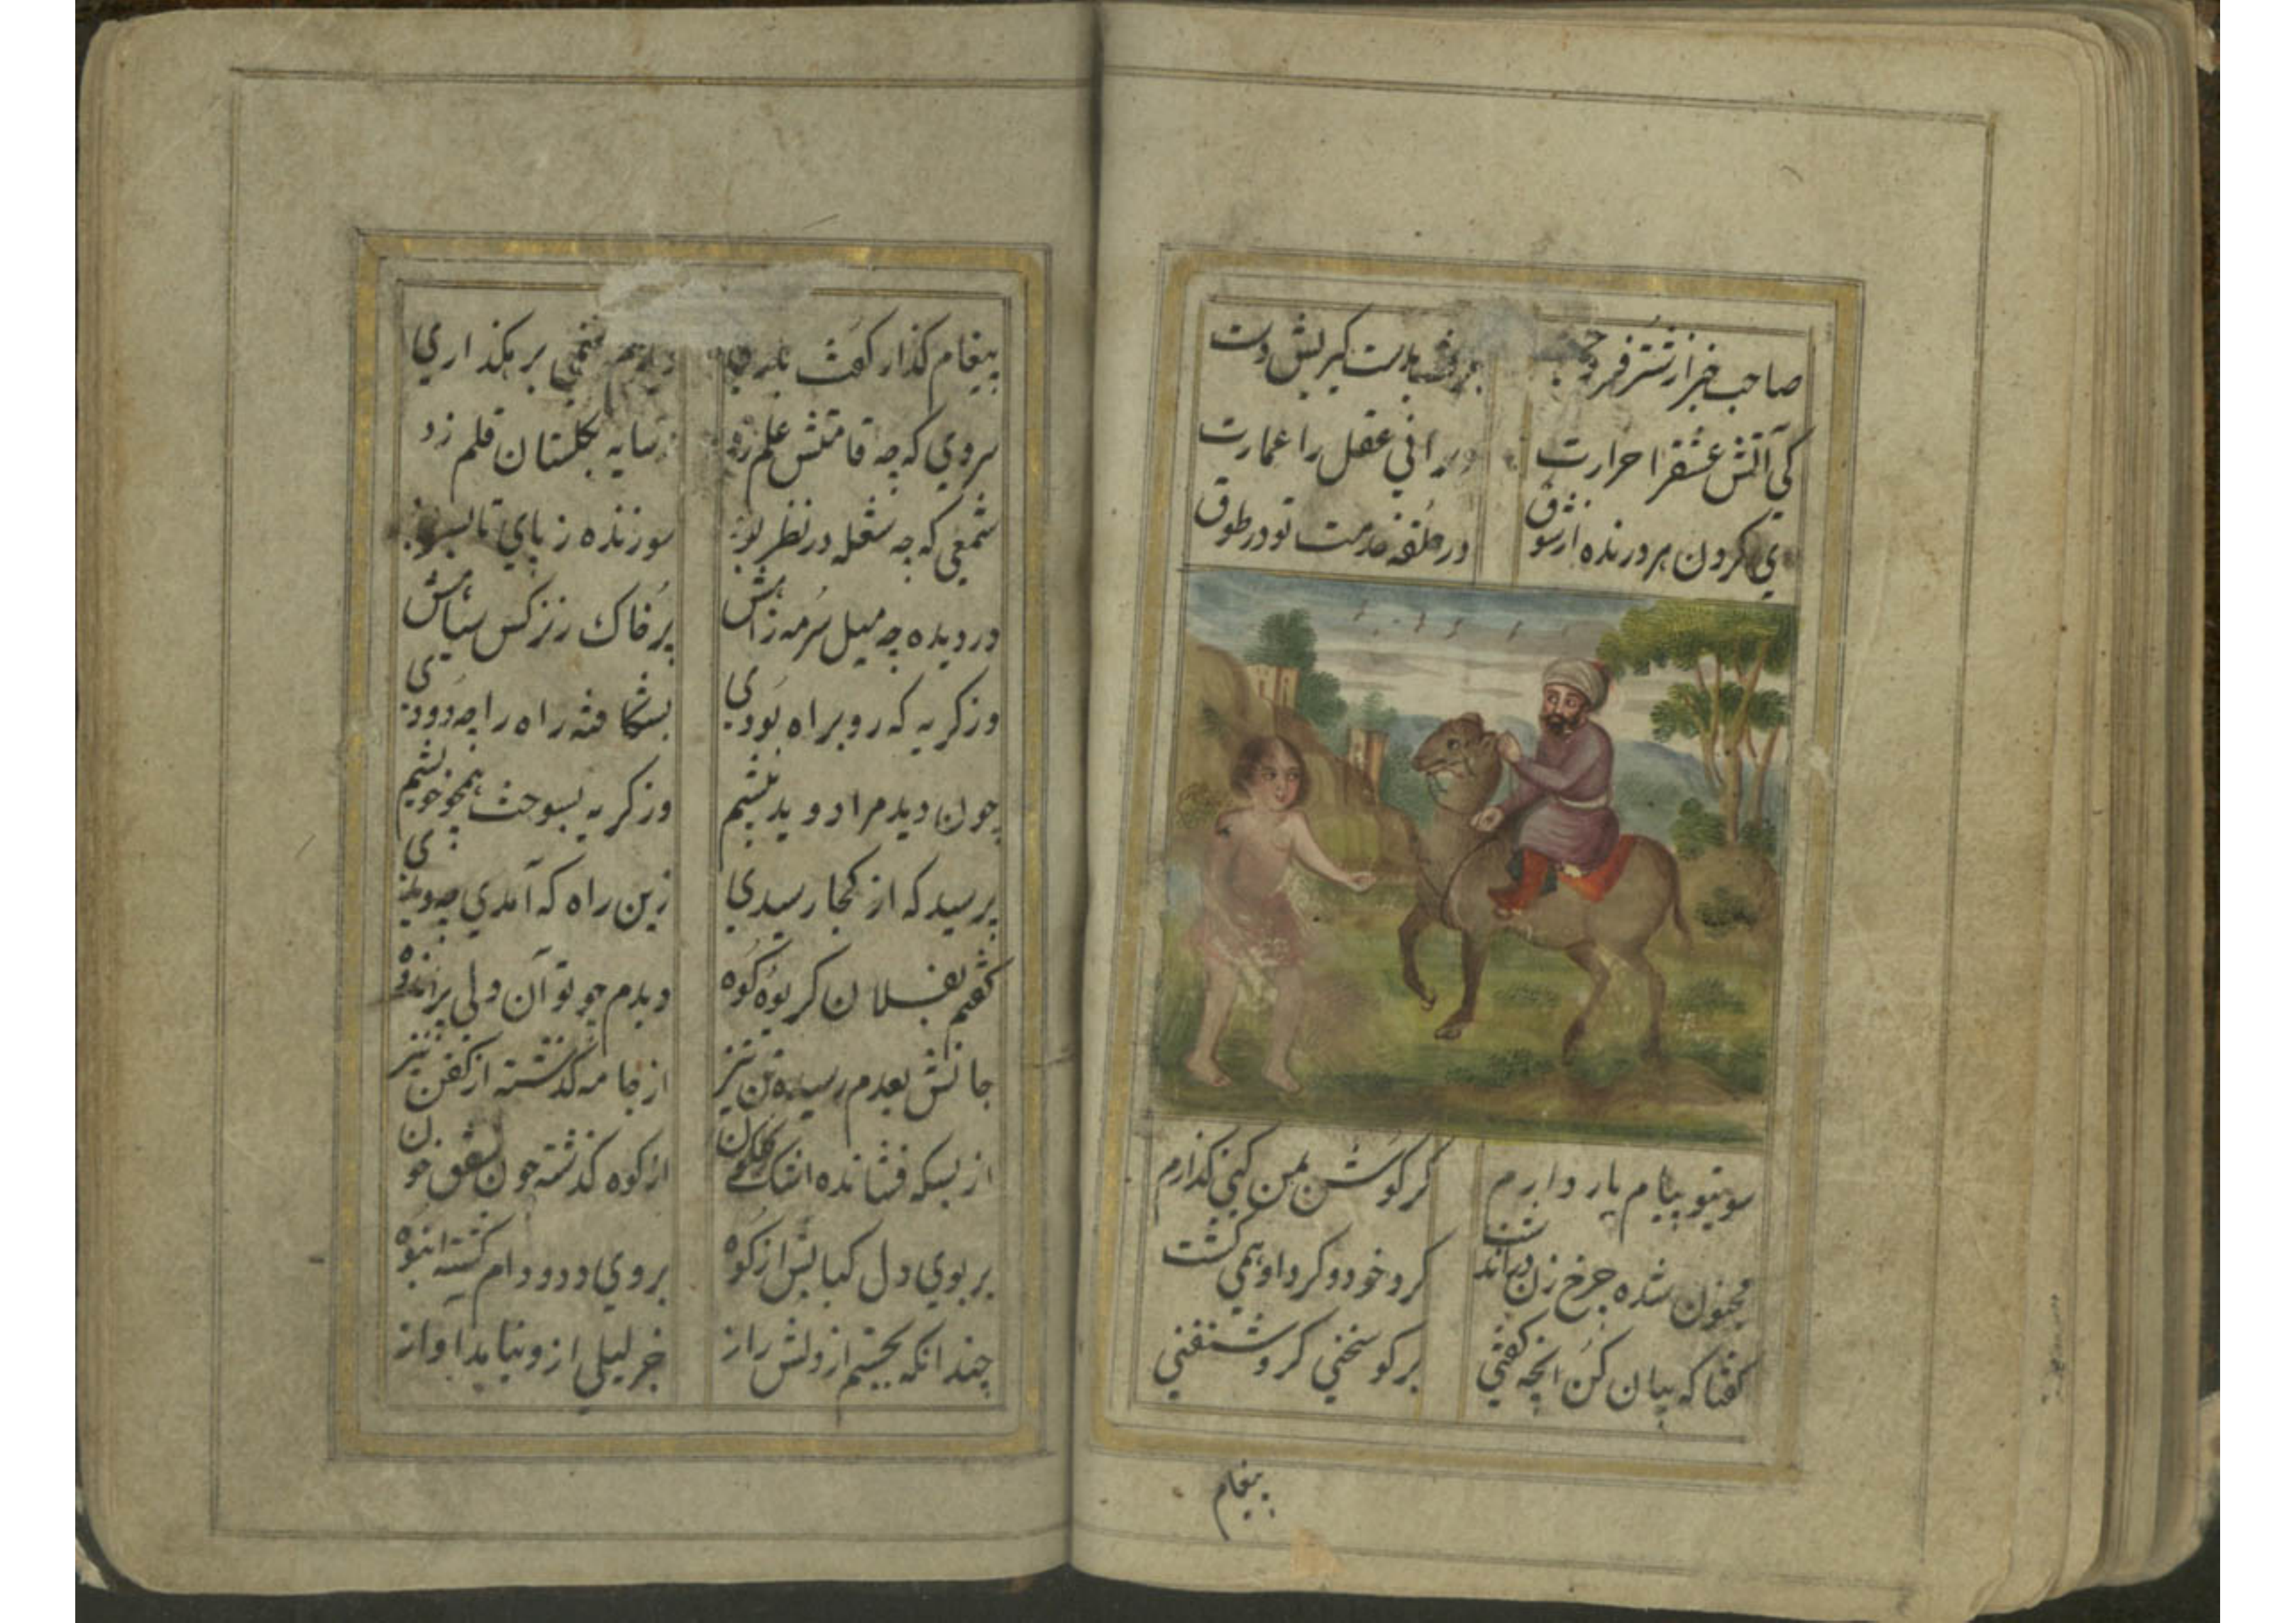 صاحب خبر از شتر فرو جست بدست گیر بش دست
کی آتش عشقرا حرارت ویرانی عقل را عمارت
ی کردون مرد زنده از شوق در حلقه خدمت تو در طوق
سویتو پیام یار دارم کر کوش بمن کنی کذارم
مجنون شده چرخ زن در آندشت کرد خود و کرد او همی کشت
کفتا که بیان کن انچه کفتی بر کو سخنی کزو شنفتی
پیغام
پیغام کذار کفت باری غمی بر هکذاری
سروی که چه قامتش علم زد سایه بکلستان قلم زد
شمعی که چه شعله در نظر بود سوزنده ز پای تا بسر بود
در دیده چه میل سرمه زاهش پر خاک ز نرکس سیاهش
وز کریه که رو براه بودی بشکافته راه را چه دودی
چون دید مرا دوید پیشم وز کریه بسوخت همچو خویشم
پرسید که از کجا رسیدی زین راه که آمدی چه دیدی
کفتم بفلان کریوه کوه دیدم چو تو آن ولی پر اندوه
جانش بعدم رسیده تن نیز از جامه کذشته از کفن نیز
از بسکه فشانده اشک کلکون از کوه کذشته چون شفق خون
بر بوی دل کبابش از کوه بروی دد و دام کشته انبوه
چندانکه بجستم از دلش راز جز لیلی ازو نیامد اواز